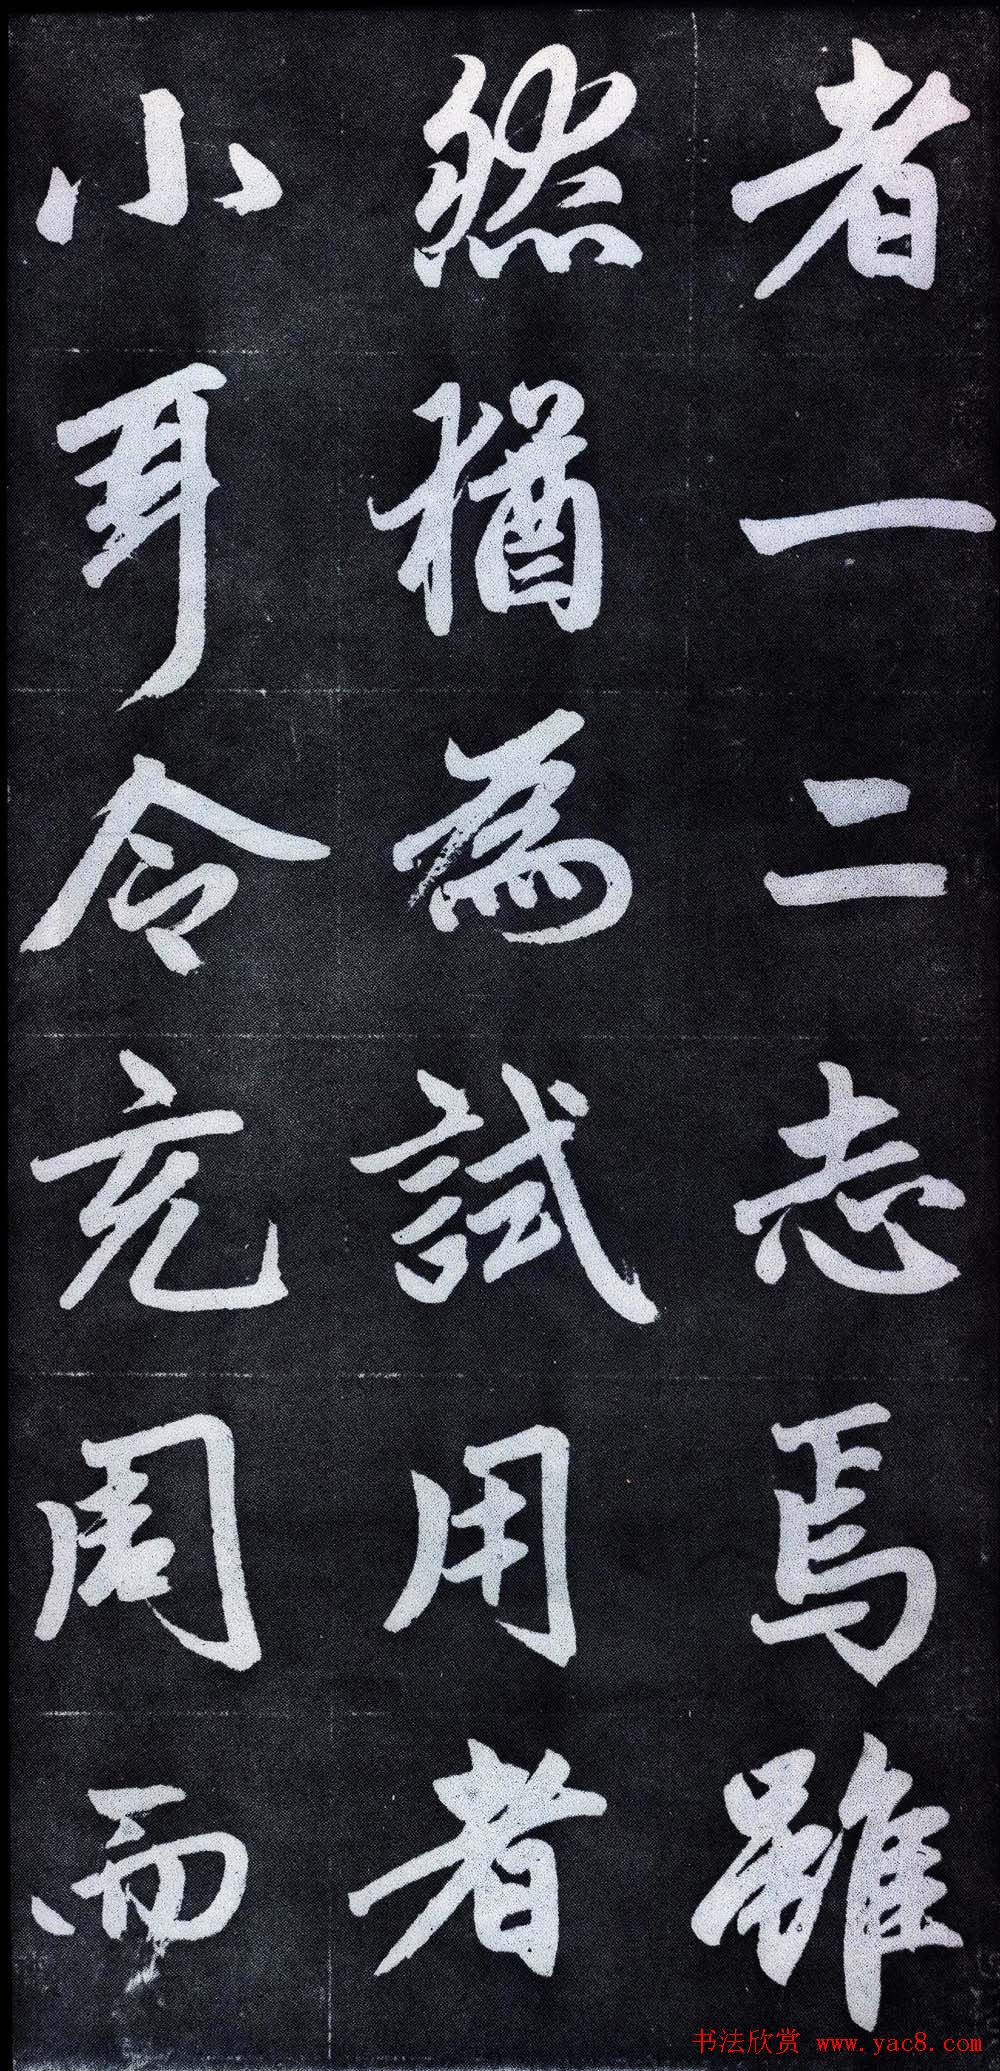 者一二志焉雖
然猶為試用者
小耳令充周而
书法欣赏 www.yac8.com